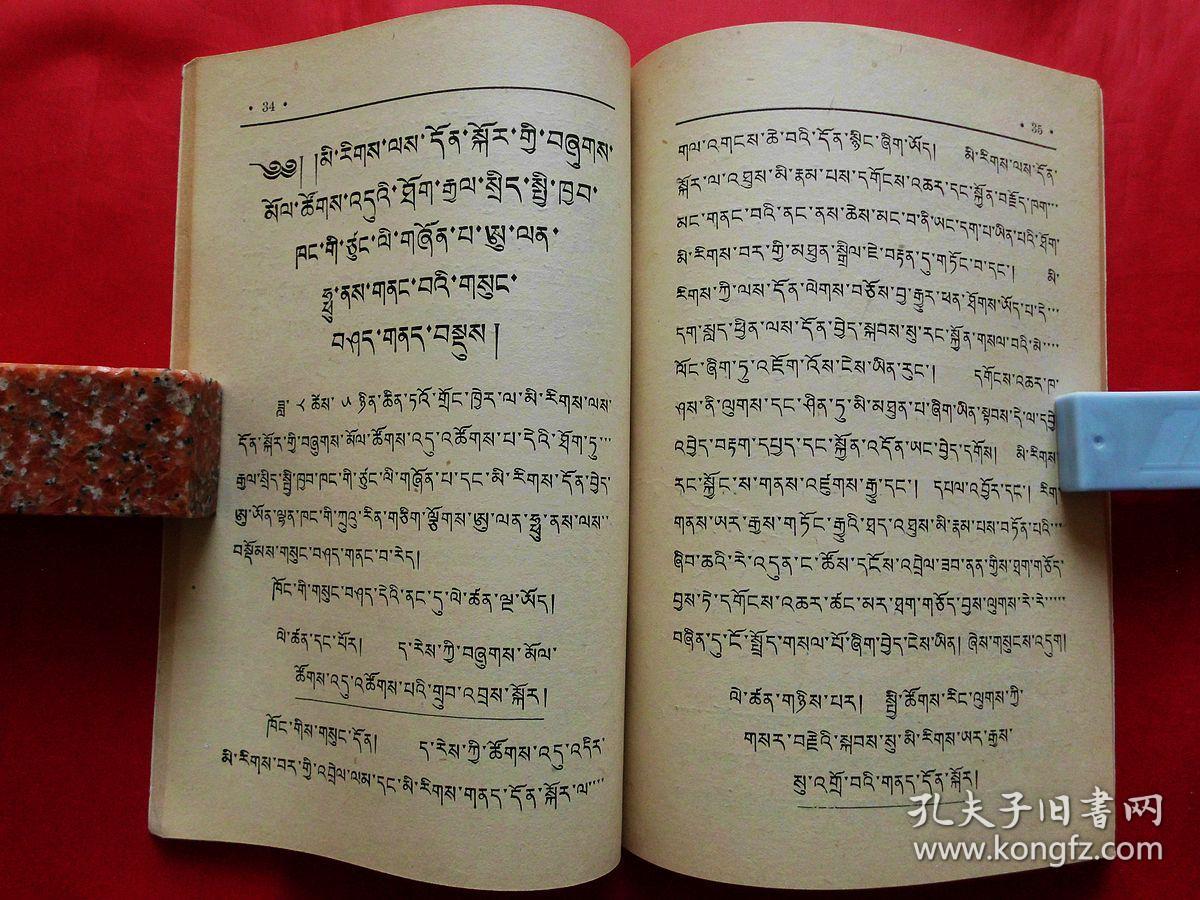 • 34 •
༄༅། །མི་རིགས་ལས་དོན་སྐོར་གྱི་བཞུགས་
མོལ་ཚོགས་འདུའི་ཐོག་རྒྱལ་སྲིད་སྤྱི་ཁྱབ་
ཁང་གི་ཙུང་ལི་གཞོན་པ་ཨུ་ལན་
ཧྥུ་ནས་གནང་བའི་གསུང་
བཤད་གནད་བསྡུས།
ཟླ་ ༨ ཚེས་ ༥ ཉིན་ཆིན་ཏའོ་གྲོང་ཁྱེར་ལ་མི་རིགས་ལས་
དོན་སྐོར་གྱི་བཞུགས་མོལ་ཚོགས་འདུ་འཚོགས་པ་དེའི་ཐོག་ཏུ་…
རྒྱལ་སྲིད་སྤྱི་ཁྱབ་ཁང་གི་ཙུང་ལི་གཞོན་པ་དང་མི་རིགས་དོན་བྱེད་
ཨུ་ཡོན་ལྷན་ཁང་གི་ཀྲུའུ་རིན་གཅིག་ལྕོགས་ཨུ་ལན་ཧྥུ་ནས་ལས་…
བསྡོམས་གསུང་བཤད་གནང་བ་རེད།
ཁོང་གི་གསུང་བཤད་དེའི་ནང་དུ་ལེ་ཚན་ལྔ་ཡོད།
ལེ་ཚན་དང་པོར། ད་རེས་ཀྱི་བཞུགས་མོལ་
ཚོགས་འདུ་འཚོགས་པའི་གྲུབ་འབྲས་སྐོར།
ཁོང་གིས་གསུང་དོན། ད་རེས་ཀྱི་ཚོགས་འདུ་འདིར་
མི་རིགས་བར་གྱི་འབྲེལ་ལམ་དང་མི་རིགས་གནད་དོན་སྐོར་ལ་…
• 35 •
གལ་འགངས་ཆེ་བའི་དོན་སྙིང་ཞིག་ཡོད། མི་རིགས་ལས་དོན་
སྐོར་ལ་འཐུས་མི་རྣམ་པས་དགོངས་འཆར་དང་སྐྱོན་བརྗོད་ཁག་…
མང་གནང་བའི་ནང་ནས་ཆེས་མང་བ་ནི་ཡང་དག་པ་ཡིན་པའི་ཐོག་
མི་རིགས་བར་གྱི་མཐུན་སྒྲིལ་ཇེ་བརྟན་དུ་གཏོང་བ་དང་། མི་
རིགས་ཀྱི་ལས་དོན་ལེགས་བཅོས་བྱ་རྒྱུར་ཕན་ཐོགས་ཡོད་པ་དེ་…
དག་སླད་ཕྱིན་ལས་དོན་བྱེད་སྐབས་སུ་རང་སྐྱོན་གསལ་བའི་མེ་…
ལོང་ཞིག་ཏུ་འཇོག་འོས་ངེས་ཡིན་རུང་། དགོངས་འཆར་ཁ་
ཤས་ནི་ལུགས་དང་ཤིན་ཏུ་མི་མཐུན་པ་ཞིག་ཡིན་སྟབས་དེ་ལ་དབྱེ
འབྱེད་བརྟག་དཔྱད་དང་སྐྱོན་འདོན་ཡང་བྱེད་དགོས། མི་རིགས་
རང་སྐྱོང་ས་གནས་འཛུགས་རྒྱུ་དང་། དཔལ་འབྱོར་དང་། རིག
གནས་ཡར་རྒྱས་གཏོང་རྒྱུའི་ཐད་འཐུས་མི་རྣམ་པས་བཏོན་པའི་…
ཞིབ་ཆའི་རེ་འདུན་ང་ཚོས་དངོས་འབྲེལ་ཟབ་ནན་གྱིས་ཐག་གཅོད་
བྱས་ཏེ་དགོངས་འཆར་ཚང་མར་ཐག་གཅོད་བྱས་ལུགས་རེ་རེ་…
བཞིན་དུ་ངོ་སྤྲོད་གསལ་པོ་ཞིག་བྱེད་ངེས་ཡིན། ཞེས་གསུངས་འདུག།
ལེ་ཚན་གཉིས་པར། སྤྱི་ཚོགས་རིང་ལུགས་ཀྱི་
གསར་བརྗེའི་སྐབས་སུ་མི་རིགས་ཡར་རྒྱས་
སུ་འགྲོ་བའི་གནད་དོན་སྐོར།
孔夫子旧书网
www.kongfz.com